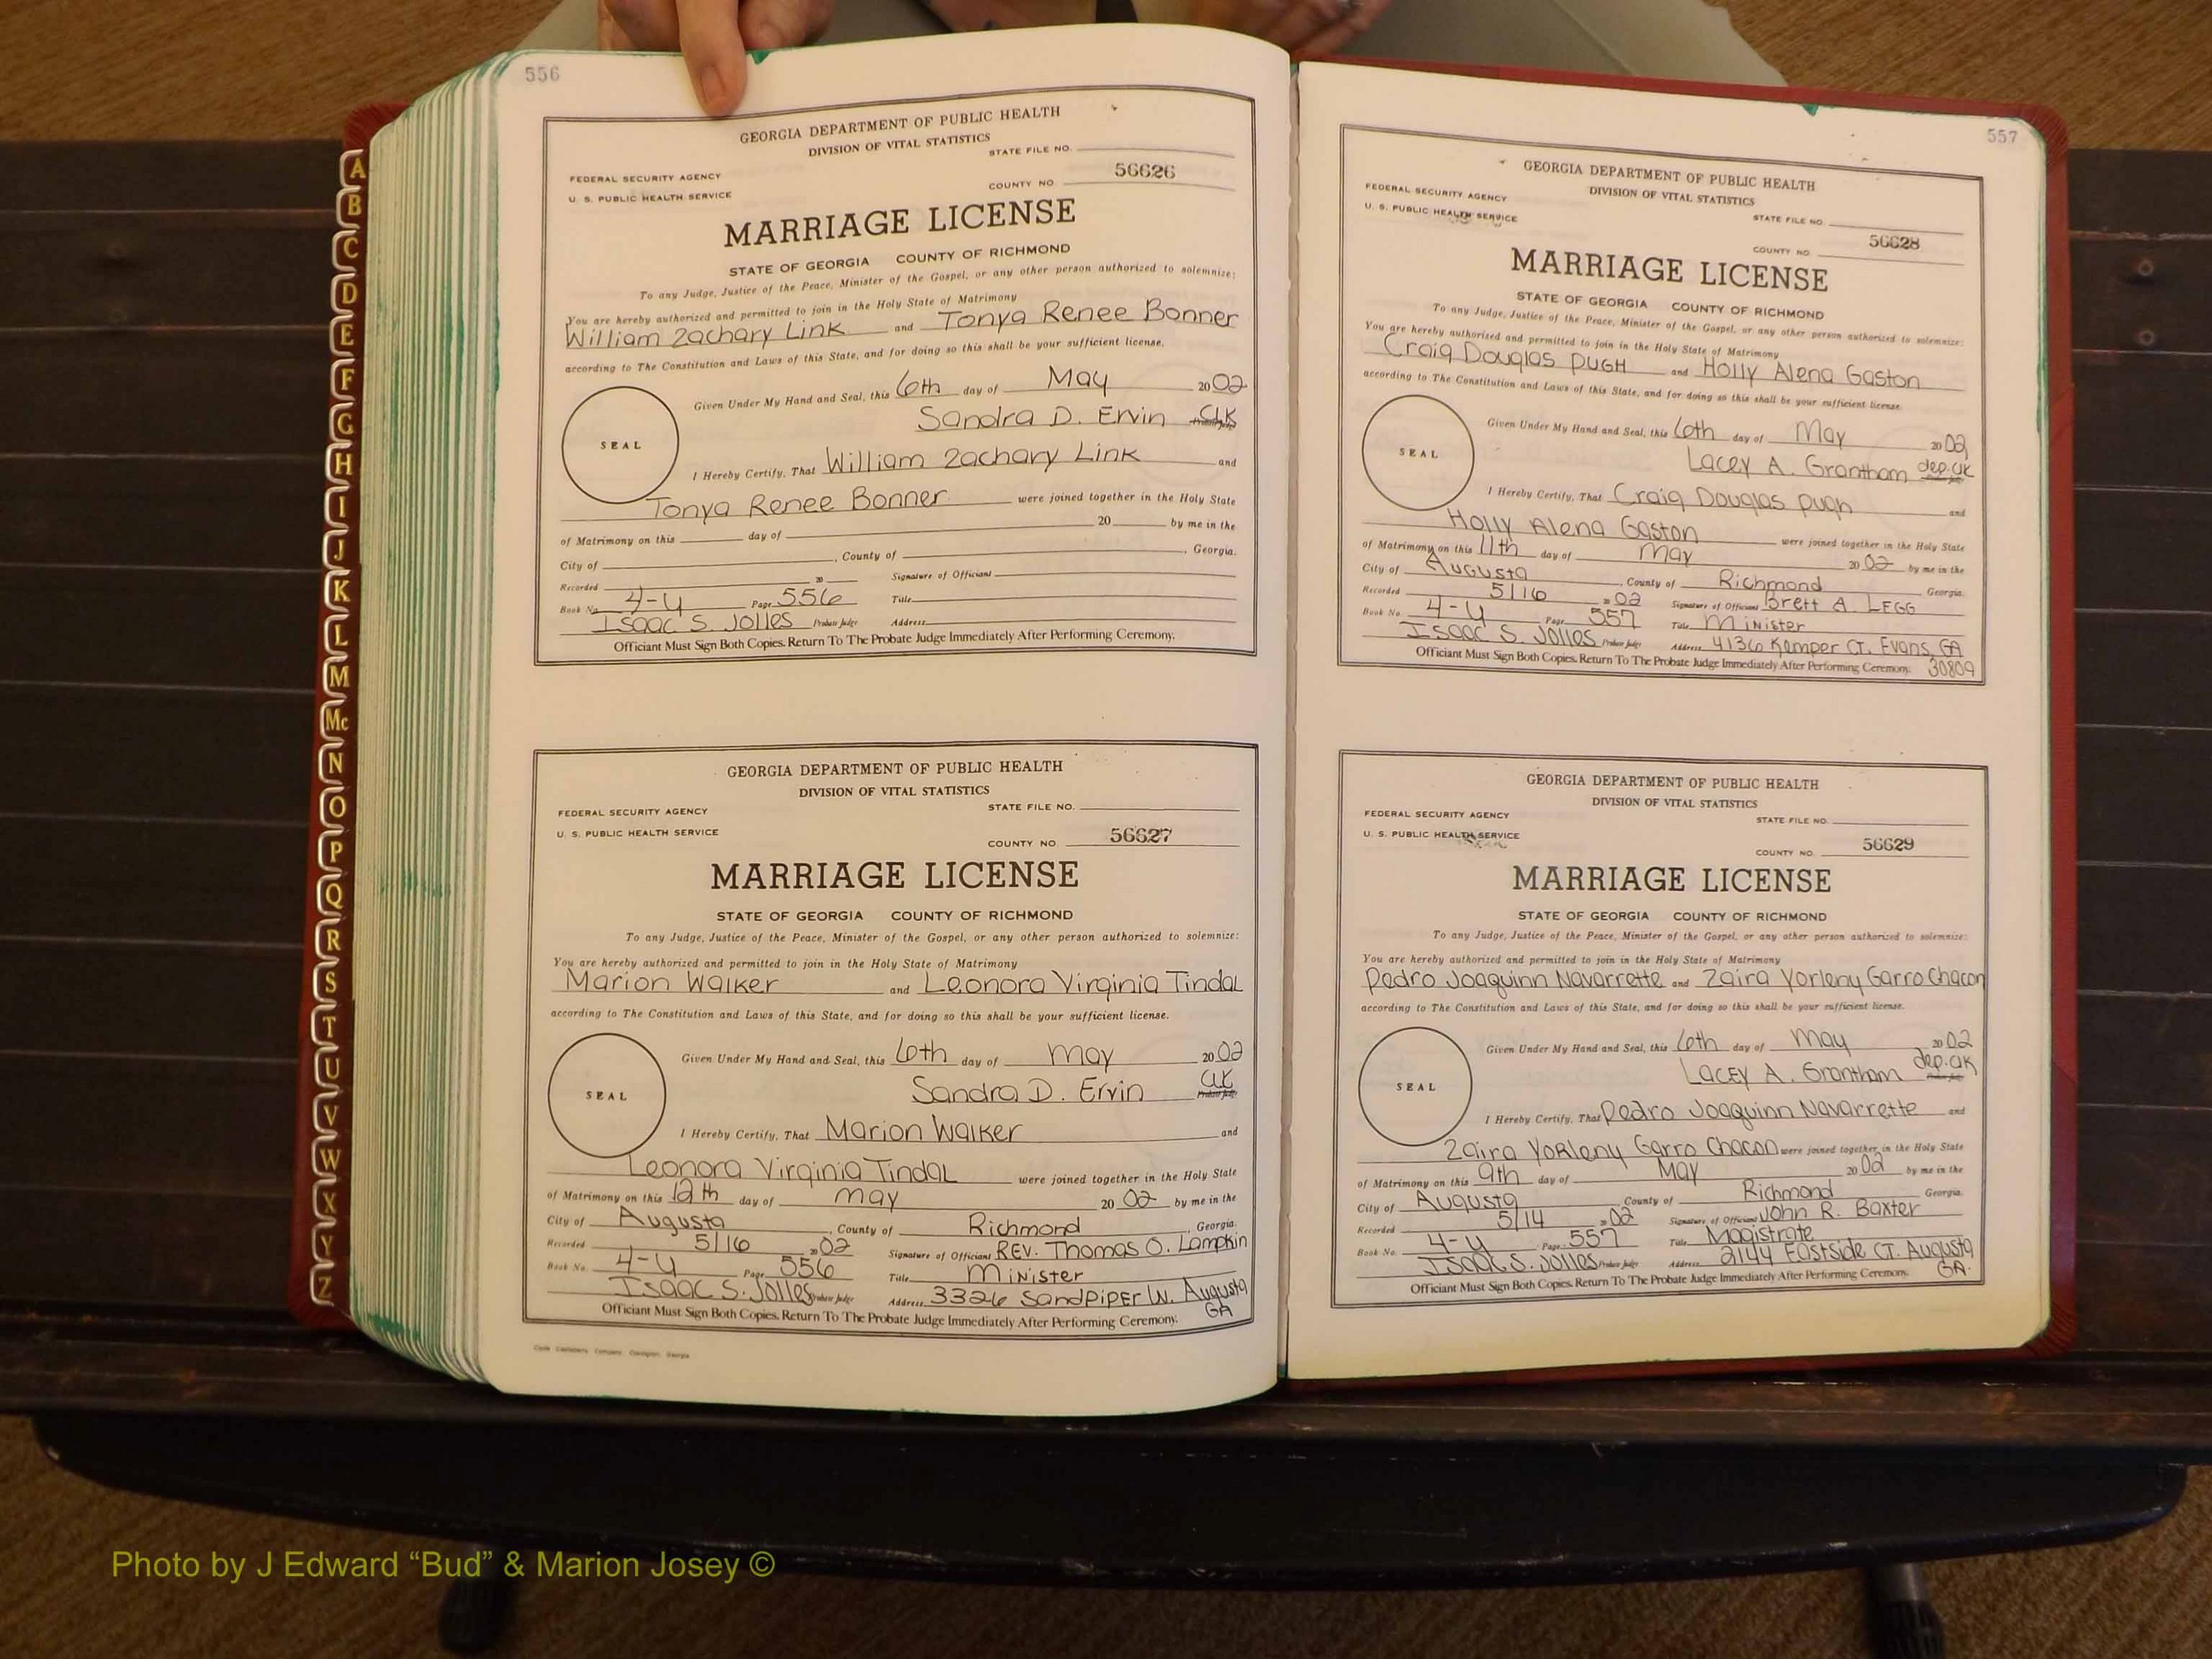 556
GEORGIA DEPARTMENT OF PUBLIC HEALTH
DIVISION OF VITAL STATISTICS
STATE FILE NO.
FEDERAL SECURITY AGENCY
U. S. PUBLIC HEALTH SERVICE
COUNTY NO. 56626
MARRIAGE LICENSE
STATE OF GEORGIA COUNTY OF RICHMOND
To any Judge, Justice of the Peace, Minister of the Gospel, or any other person authorized to solemnize:
You are hereby authorized and permitted to join in the Holy State of Matrimony
William Zachary Link and Tonya Renee Bonner
according to The Constitution and Laws of this State, and for doing so this shall be your sufficient license.
Given Under My Hand and Seal, this 6th day of May 2002
SEAL
Sandra D. Ervin Clk
I Hereby Certify, That William Zachary Link and
Tonya Renee Bonner were joined together in the Holy State
of Matrimony on this day of 20 by me in the
City of , County of , Georgia.
Recorded 20 Signature of Official
Book No. 4-U Page 556 Title
Isaac S. Jolles Probate Judge Address
Officiant Must Sign Both Copies. Return To The Probate Judge Immediately After Performing Ceremony.
GEORGIA DEPARTMENT OF PUBLIC HEALTH
DIVISION OF VITAL STATISTICS
STATE FILE NO.
FEDERAL SECURITY AGENCY
U. S. PUBLIC HEALTH SERVICE
COUNTY NO. 56627
MARRIAGE LICENSE
STATE OF GEORGIA COUNTY OF RICHMOND
To any Judge, Justice of the Peace, Minister of the Gospel, or any other person authorized to solemnize:
You are hereby authorized and permitted to join in the Holy State of Matrimony
Marion Walker and Leonora Virginia Tindal
according to The Constitution and Laws of this State, and for doing so this shall be your sufficient license.
Given Under My Hand and Seal, this 6th day of May 2002
SEAL
Sandra D. Ervin Clk Probate Judge
I Hereby Certify, That Marion Walker and
Leonora Virginia Tindal were joined together in the Holy State
of Matrimony on this 12th day of May 2002 by me in the
City of Augusta , County of Richmond , Georgia.
Recorded 5/16 2002 Signature of Official REV. Thomas O. Lampkin
Book No. 4-U Page 556 Title Minister
Isaac S. Jolles Probate Judge Address 3326 Sandpiper W. Augusta
GA
Officiant Must Sign Both Copies. Return To The Probate Judge Immediately After Performing Ceremony.
Company Covington, Georgia
557
GEORGIA DEPARTMENT OF PUBLIC HEALTH
DIVISION OF VITAL STATISTICS
FEDERAL SECURITY AGENCY
U. S. PUBLIC HEALTH SERVICE
STATE FILE NO.
COUNTY NO. 56628
MARRIAGE LICENSE
STATE OF GEORGIA COUNTY OF RICHMOND
To any Judge, Justice of the Peace, Minister of the Gospel, or any other person authorized to solemnize:
You are hereby authorized and permitted to join in the Holy State of Matrimony
Craig Douglas Pugh and Holly Alena Gaston
according to The Constitution and Laws of this State, and for doing so this shall be your sufficient license.
Given Under My Hand and Seal, this 6th day of May 2002
SEAL
Lacey A. Grantham dep. clk
I Hereby Certify, That Craig Douglas Pugh and
Holly Alena Gaston were joined together in the Holy State
of Matrimony on this 11th day of May 2002 by me in the
City of Augusta , County of Richmond Georgia.
Recorded 5/16 2002 Signature of Official Brett A. Legg
Book No. 4-U Page 557 Title Minister
Isaac S. Jolles Probate Judge Address 4136 Kemper Ct. Evans, GA
30809
Officiant Must Sign Both Copies. Return To The Probate Judge Immediately After Performing Ceremony.
GEORGIA DEPARTMENT OF PUBLIC HEALTH
DIVISION OF VITAL STATISTICS
FEDERAL SECURITY AGENCY
U. S. PUBLIC HEALTH SERVICE
STATE FILE NO.
COUNTY NO. 56629
MARRIAGE LICENSE
STATE OF GEORGIA COUNTY OF RICHMOND
To any Judge, Justice of the Peace, Minister of the Gospel, or any other person authorized to solemnize:
You are hereby authorized and permitted to join in the Holy State of Matrimony
Pedro Joaquinn Navarrette and Zaira Yorleny Garro Chacon
according to The Constitution and Laws of this State, and for doing so this shall be your sufficient license.
Given Under My Hand and Seal, this 6th day of May 2002
SEAL
Lacey A. Grantham dep. clk
I Hereby Certify, That Pedro Joaquinn Navarrette and
Zaira Yorleny Garro Chacon were joined together in the Holy State
of Matrimony on this 9th day of May 2002 by me in the
City of Augusta , County of Richmond Georgia.
Recorded 5/14 2002 Signature of Official John R. Baxter
Book No. 4-U Page 557 Title Magistrate
Isaac S. Jolles Probate Judge Address 2144 Eastside Ct. Augusta
GA.
Officiant Must Sign Both Copies. Return To The Probate Judge Immediately After Performing Ceremony.
A
B
C
D
E
F
G
H
I
J
K
L
M
Mc
N
O
P
Q
R
S
T
U
V
W
X
Y
Z
Photo by J Edward “Bud” & Marion Josey ©